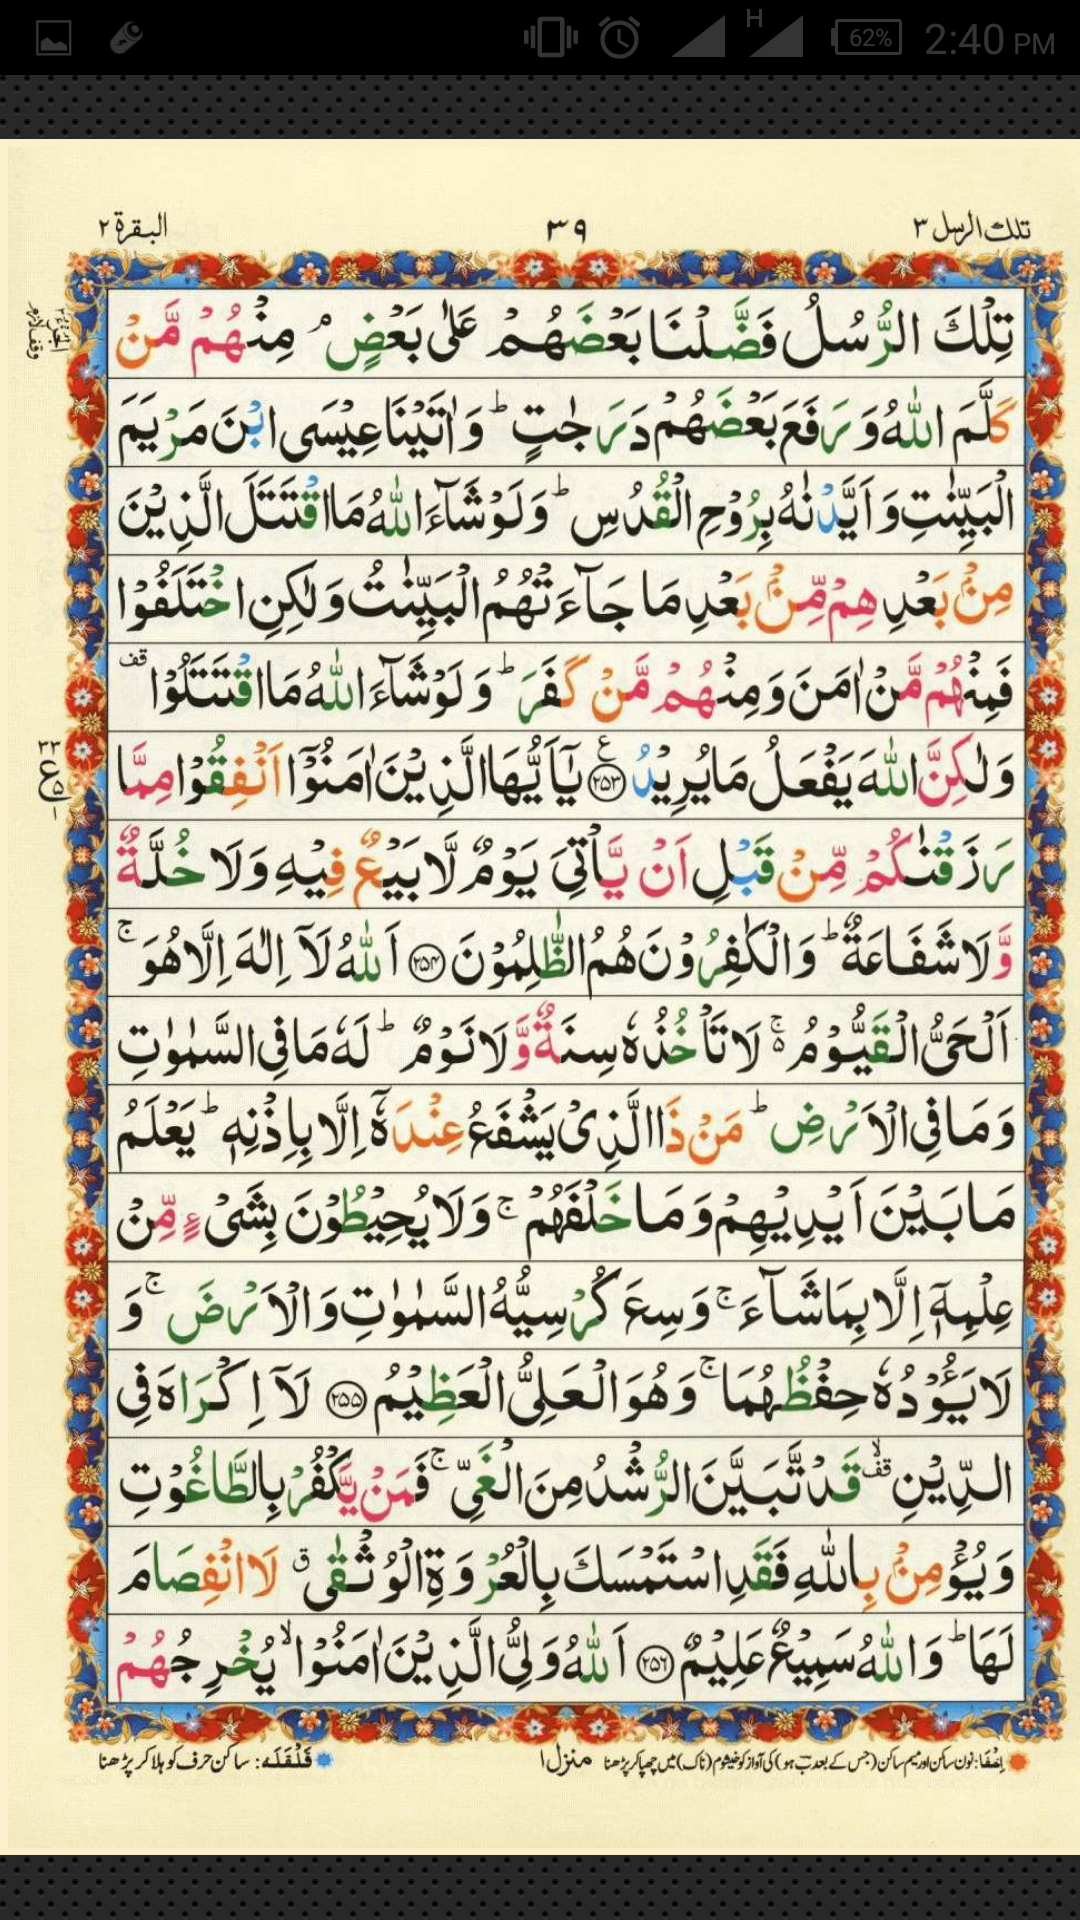 62% 2:40 PM
H
تلك الرسل ٣ ٣٩ البقرة ٢
تِلْكَ الرُّسُلُ فَضَّلْنَا بَعْضَهُمْ عَلٰى بَعْضٍ ۘ مِنْهُمْ مَّنْ
كَلَّمَ اللّٰهُ وَرَفَعَ بَعْضَهُمْ دَرَجٰتٍ ؕ وَاٰتَيْنَا عِيْسَى ابْنَ مَرْيَمَ
الْبَيِّنٰتِ وَاَيَّدْنٰهُ بِرُوْحِ الْقُدُسِ ؕ وَلَوْ شَآءَ اللّٰهُ مَا اقْتَتَلَ الَّذِيْنَ
مِنْۢ بَعْدِهِمْ مِّنْۢ بَعْدِ مَا جَآءَتْهُمُ الْبَيِّنٰتُ وَلٰكِنِ اخْتَلَفُوْا
فَمِنْهُمْ مَّنْ اٰمَنَ وَمِنْهُمْ مَّنْ كَفَرَ ؕ وَلَوْ شَآءَ اللّٰهُ مَا اقْتَتَلُوْا قف
وَلٰكِنَّ اللّٰهَ يَفْعَلُ مَا يُرِيْدُ ﴿۲۵۳﴾ يٰۤاَيُّهَا الَّذِيْنَ اٰمَنُوْۤا اَنْفِقُوْا مِمَّا
رَزَقْنٰكُمْ مِّنْ قَبْلِ اَنْ يَّاْتِىَ يَوْمٌ لَّا بَيْعٌ فِيْهِ وَلَا خُلَّةٌ
وَّلَا شَفَاعَةٌ ؕ وَالْكٰفِرُوْنَ هُمُ الظّٰلِمُوْنَ ﴿۲۵۴﴾ اَللّٰهُ لَاۤ اِلٰهَ اِلَّا هُوَ ۚ
اَلْحَىُّ الْقَيُّوْمُ ۬ۚ لَا تَاْخُذُهٗ سِنَةٌ وَّلَا نَوْمٌ ؕ لَهٗ مَا فِى السَّمٰوٰتِ
وَمَا فِى الْاَرْضِ ؕ مَنْ ذَا الَّذِىْ يَشْفَعُ عِنْدَهٗۤ اِلَّا بِاِذْنِهٖ ؕ يَعْلَمُ
مَا بَيْنَ اَيْدِيْهِمْ وَمَا خَلْفَهُمْ ۚ وَلَا يُحِيْطُوْنَ بِشَىْءٍ مِّنْ
عِلْمِهٖۤ اِلَّا بِمَا شَآءَ ۚ وَسِعَ كُرْسِيُّهُ السَّمٰوٰتِ وَالْاَرْضَ ۚ وَ
لَا يَــُٔوْدُهٗ حِفْظُهُمَا ۚ وَهُوَ الْعَلِىُّ الْعَظِيْمُ ﴿۲۵۵﴾ لَاۤ اِكْرَاهَ فِى
الدِّيْنِ ۙ قف قَدْ تَّبَيَّنَ الرُّشْدُ مِنَ الْغَىِّ ۚ فَمَنْ يَّكْفُرْ بِالطَّاغُوْتِ
وَيُؤْمِنْۢ بِاللّٰهِ فَقَدِ اسْتَمْسَكَ بِالْعُرْوَةِ الْوُثْقٰى ق لَا انْفِصَامَ
لَهَا ؕ وَاللّٰهُ سَمِيْعٌ عَلِيْمٌ ﴿۲۵۶﴾ اَللّٰهُ وَلِىُّ الَّذِيْنَ اٰمَنُوْا ۙ يُخْرِجُهُمْ
اِخفَا: نون ساکن اور میم ساکن (جس کے بعد ب ہو) کی آواز کو خیشوم (ناک) میں چھپا کر پڑھنا منزل ۱ قَلْقَلَه: ساکن حرف کو ہلا کر پڑھنا